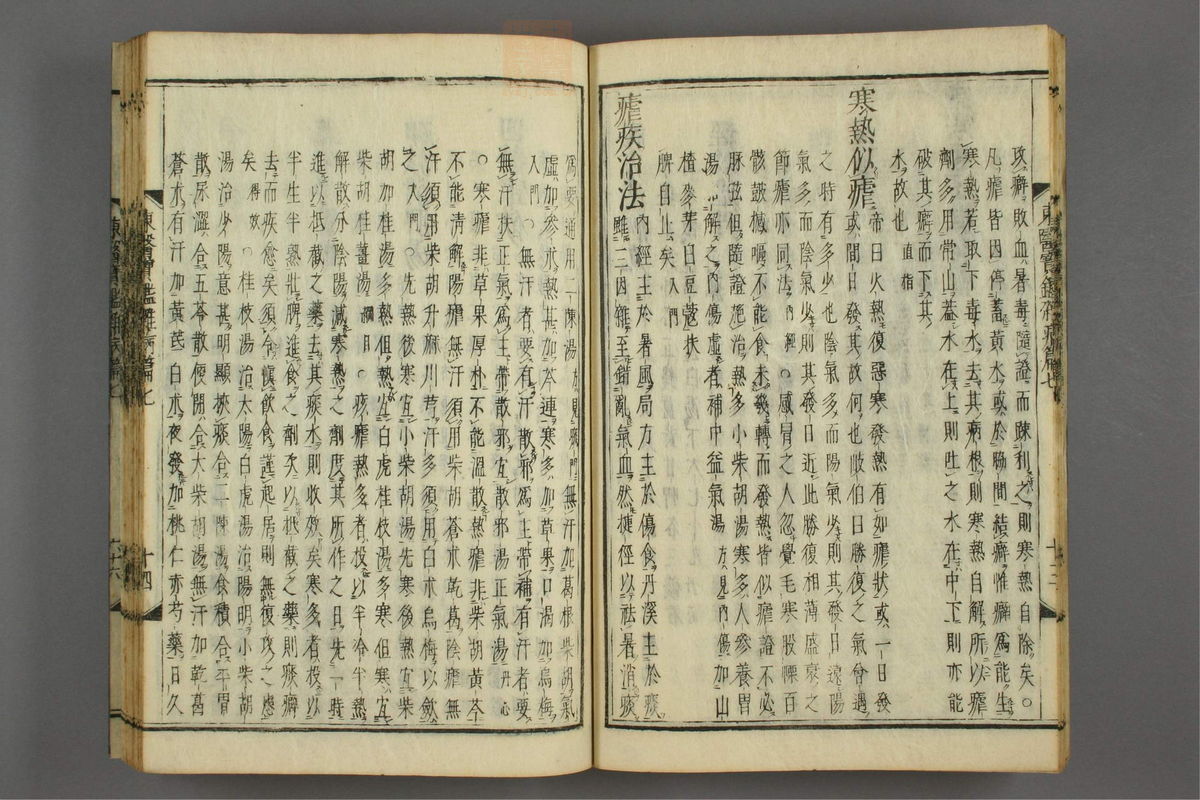 攻癖敗血暑毒隨證而疎利之則寒熱自除矣○
凡瘧皆因停蓄黃水或於脇間結癖惟癖爲能生
寒熱若取下毒水去其病根則寒熱自解所以瘧
劑多用常山蓋水在上則吐之水在中下則亦能
破其癖而下其
水故也 直指
寒熱似瘧 帝曰火熱復惡寒發熱有如瘧狀或一日發
或間日發其故何也岐伯曰勝復之氣會遇
之時有多少也陰氣多而陽氣少則其發日遠陽
氣多而陰氣少則其發日近此勝復相薄盛衰之
節瘧亦同法 內經 ○感冒之人忽覺毛寒股慄百
骸皷撼嘔不能食未幾轉而發熱皆似瘧證不必
脉弦但隨證施治熱多小柴胡湯寒多人參養胃
湯解之內傷虛者補中益氣湯 方見內傷 加山
楂麥芽白豆蔲扶
脾自止矣 入門
瘧疾治法 內經主於暑風局方主於傷食丹溪主於痰
雖三因雜至錯亂氣血然捷徑以祛暑消痰
爲要通用二陳湯 方見痰門 無汗加葛根柴胡氣
虛加參朮熱甚加芩連寒多加草果口渴加烏梅
入門 ○無汗者要有汗散邪爲主帶補有汗者要
無汗扶正氣爲主帶散邪宜散邪湯正氣湯 丹心
○寒瘧非草果厚朴不能溫散熱瘧非柴胡黃芩
不能清解陽瘧無汗須用柴胡蒼朮乾葛陰瘧無
汗須用柴胡升麻川芎汗多須用白朮烏梅以斂
之 入門 ○先熱後寒宜小柴胡湯先寒後熱宜柴
胡加桂湯多熱但熱宜白虎桂枝湯多寒但寒宜
柴胡桂薑湯 綱目 ○瘧熱多者投以參
解散分陰陽減寒熱之劑度其所作之日先一時
進以抵截之藥去其痰水則收效矣寒多者投以
半生半熟壯脾進食之劑次以抵截之藥則痰癖
去而疾愈矣須令愼飮食謹起居則無復攻之患
矣 得效 ○桂枝湯治太陽白虎湯治陽明小柴胡
湯治少陽意甚明顯挾痰合二陳湯食積合平胃
散尿澁合五苓散便閉合大柴胡湯無汗加乾葛
蒼朮有汗加黃芪白朮夜發加桃仁赤芍藥日久